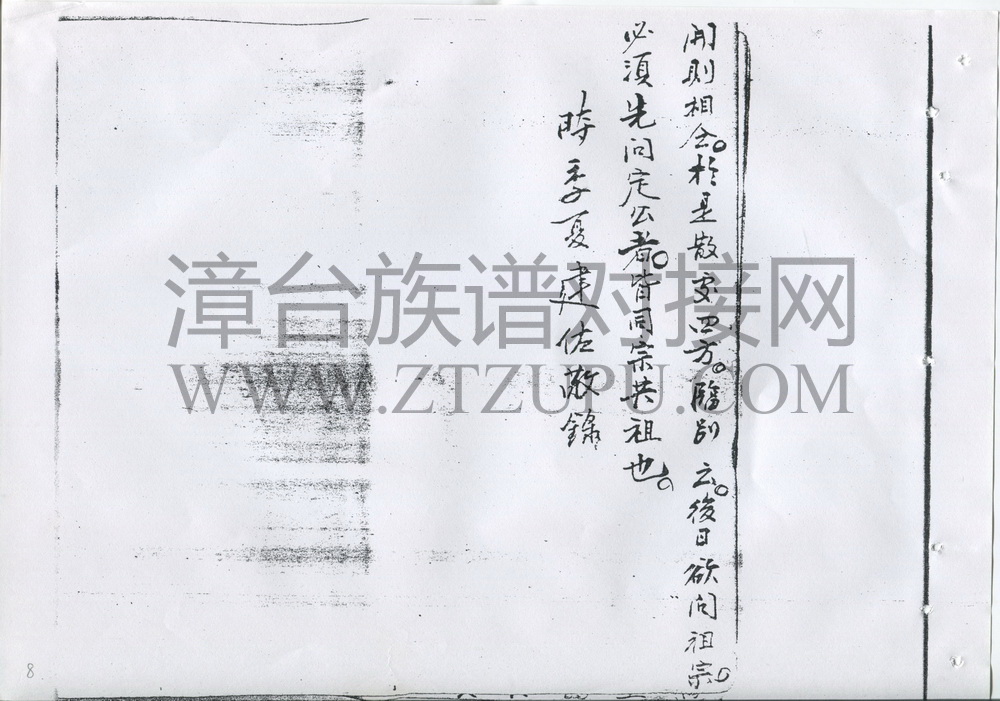 開則相合。於是散處四方。臨別云。後日欲问祖宗。
必須先问定公者。皆同宗共祖也。
時季夏建佐敬錄
漳台族谱对接网
WWW.ZTZUPU.COM
8